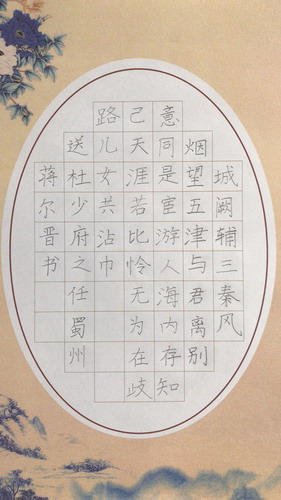 城阙辅三秦风
烟望五津与君离别
意同是宦游人海内存知
己天涯若比怜无为在歧
路儿女共沾巾
送杜少府之任蜀州
蒋尔晋书